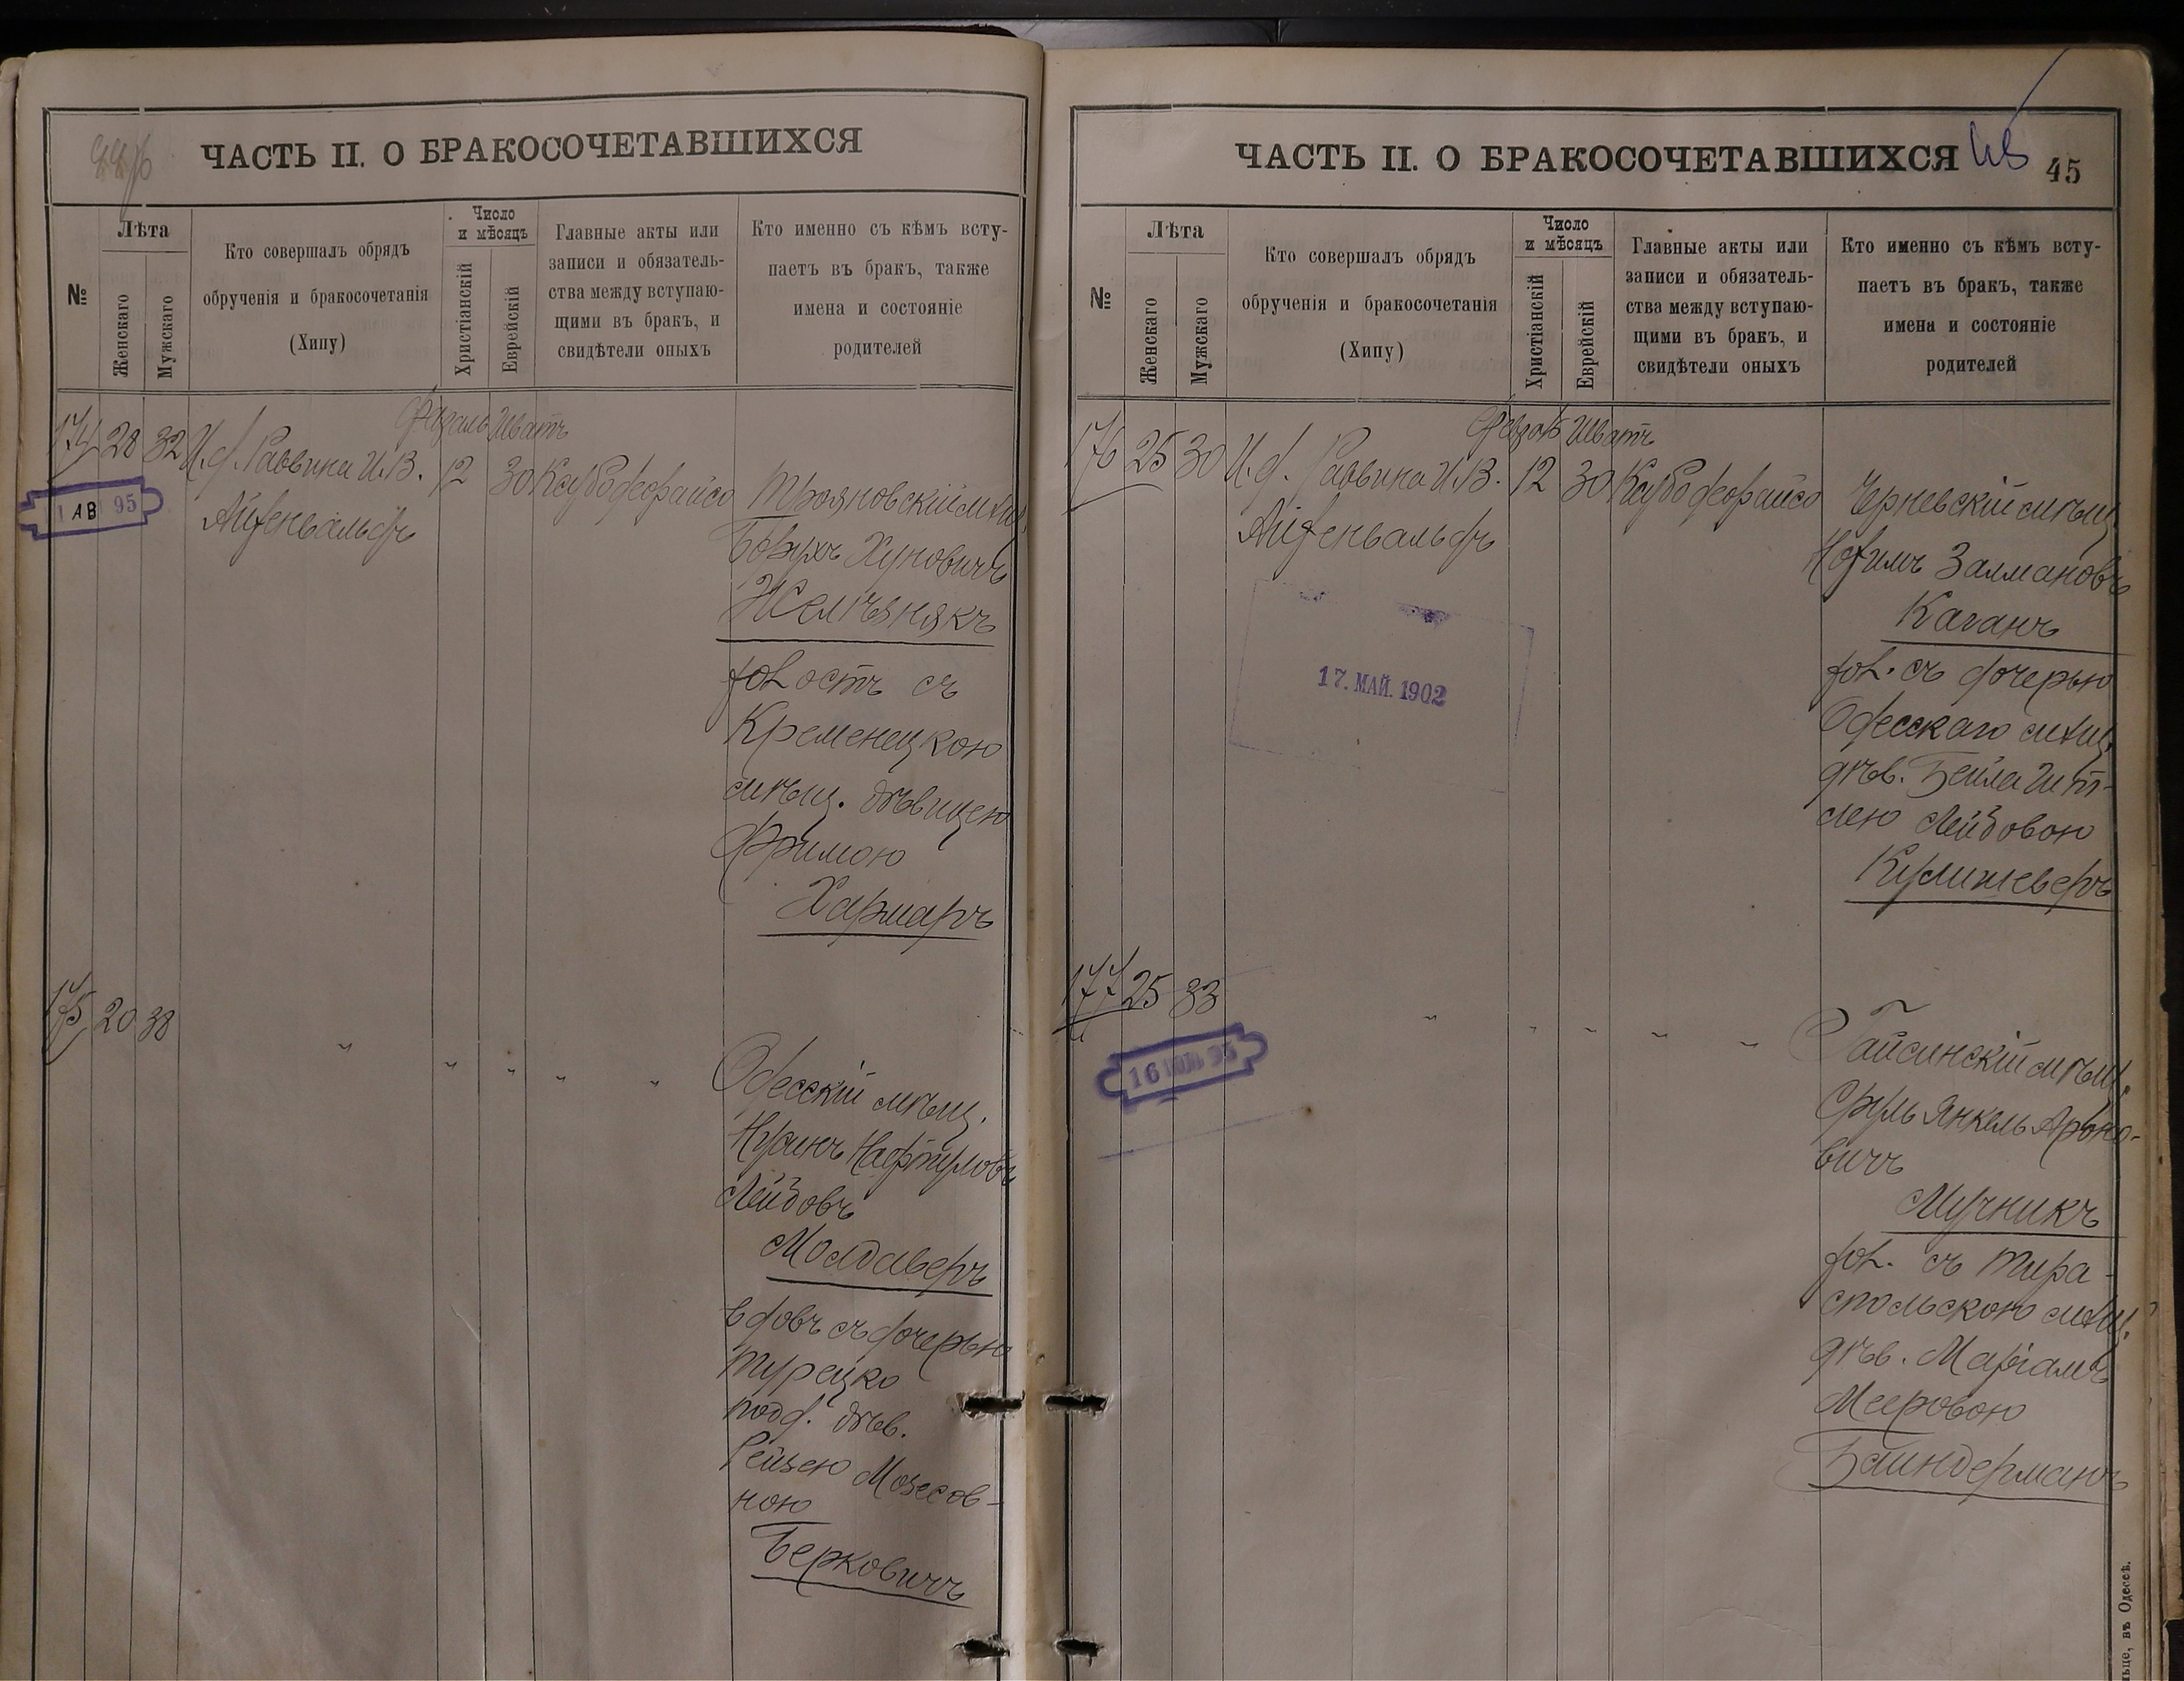 ЧАСТЬ II. О БРАКОСОЧЕТАВШИХСЯ
№
Лѣта
Женскаго
Мужскаго
Кто совершалъ обрядъ
обрученія и бракосочетанія
(Хипу)
Число
и мѣсяцъ
Христіанскій
Еврейскій
Главные акты или
записи и обязатель-
ства между вступаю-
щими въ бракъ, и
свидѣтели оныхъ
Кто именно съ кѣмъ всту-
паетъ въ бракъ, также
имена и состояніе
родителей
174 28 32 И. д. Раввина И. В.
Айхенвальдъ
Шватъ
12 30
Трояновскій мѣщ.
Борухъ Хуновичъ
Желѣзнякъ
холостъ съ
Кременецкою
мѣщ. дѣвицею
Фримою
Хармаръ
АВ 95
175 20 38
Одесскій мѣщ.
Нафтуловъ
Лейбовъ
Молдаверъ
вдовъ съ дочерью
турецко
подд. дѣв.
Рейзею Мозесов-
ною
Берковичъ
ЧАСТЬ II. О БРАКОСОЧЕТАВШИХСЯ
45
№
Лѣта
Женскаго
Мужскаго
Кто совершалъ обрядъ
обрученія и бракосочетанія
(Хипу)
Число
и мѣсяцъ
Христіанскій
Еврейскій
Главные акты или
записи и обязатель-
ства между вступаю-
щими въ бракъ, и
свидѣтели оныхъ
Кто именно съ кѣмъ всту-
паетъ въ бракъ, также
имена и состояніе
родителей
176 25 30 И. д. Раввина И. В.
Айхенвальдъ
Шватъ
12 30
17. МАЙ. 1902
Черневскій мѣщ.
Залмановъ
Каганъ
хол. съ дочерью
Одесскаго мѣщ.
дѣв. Бейла Гит-
лею Лейбовою
Кушниверъ
177 25 33
Гайсинскій мѣщ.
Сруль Янкель Ароно-
вичъ
Мучникъ
хол. съ Тира-
спольскою мѣщ.
дѣв. Маріамъ
Мееровою
Байндерманъ
въ Одессѣ.